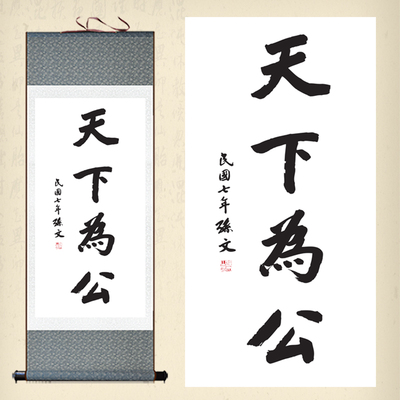 天下為公
民國七年孫文
天下為公
民國七年孫文